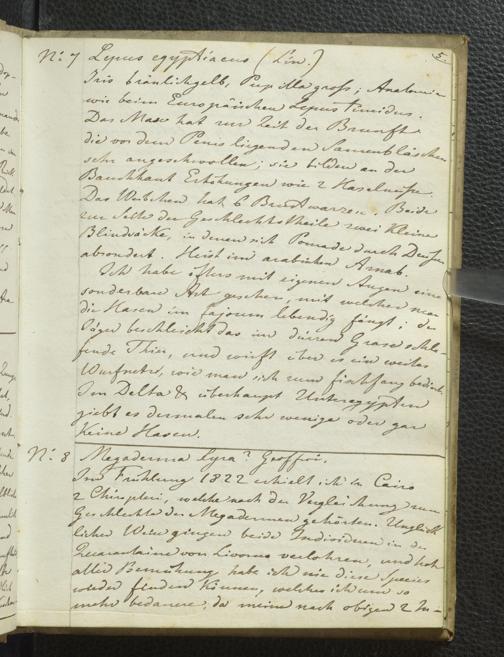 5.
N: 7 Lepus egyptiacus (Lin.)
Iris bräunlichgelb, Pupilla gross; Anatomie
wie beim Europäischen Lepus timidus.
Das Masc. hat zur Zeit der Brunft
die vor dem Penis liegenden Samenbläschen
sehr angeschwollen; sie bilden an der
Bauchhaut Erhöhungen wie 2 Haselnüsse.
Das Weibchen hat 6 Brustwarzen. Beide
zur Seite der Geschlechtstheile zwei kleine
Blindsäcke, in denen sich Pomade durch Drüsen
absondert. Heist im arabischen Arnab.
Ich habe öfters mit eigenen Augen eine
sonderbare Art gesehen, mit welcher man
die Hasen im Fajoum lebendig fängt; der
Jäger beschleicht das im dürren Grase schla-
fende Thier, und wirft über es ein weites
Wurfnetz, wie man sich zum Fischfang bedient.
Im Delta & überhaupt Unteregypten
giebt es dermalen sehr wenige oder gar
keine Hasen.
N: 8 Megaderma lyra? Geoffroi.
Im Frühling 1822 erhielt ich in Cairo
2 Chiropteri, welche nach der Vergleichung zum
Geschlechte der Megadermen gehörten. Unglück-
licher Weise gingen beide Individuen in der
Quarantaine von Livorno verlohren, und trotz
aller Bemühung habe ich nie diese Species
wieder finden können, welches ich um so
mehr bedaure, da meine nach obigen 2 In-